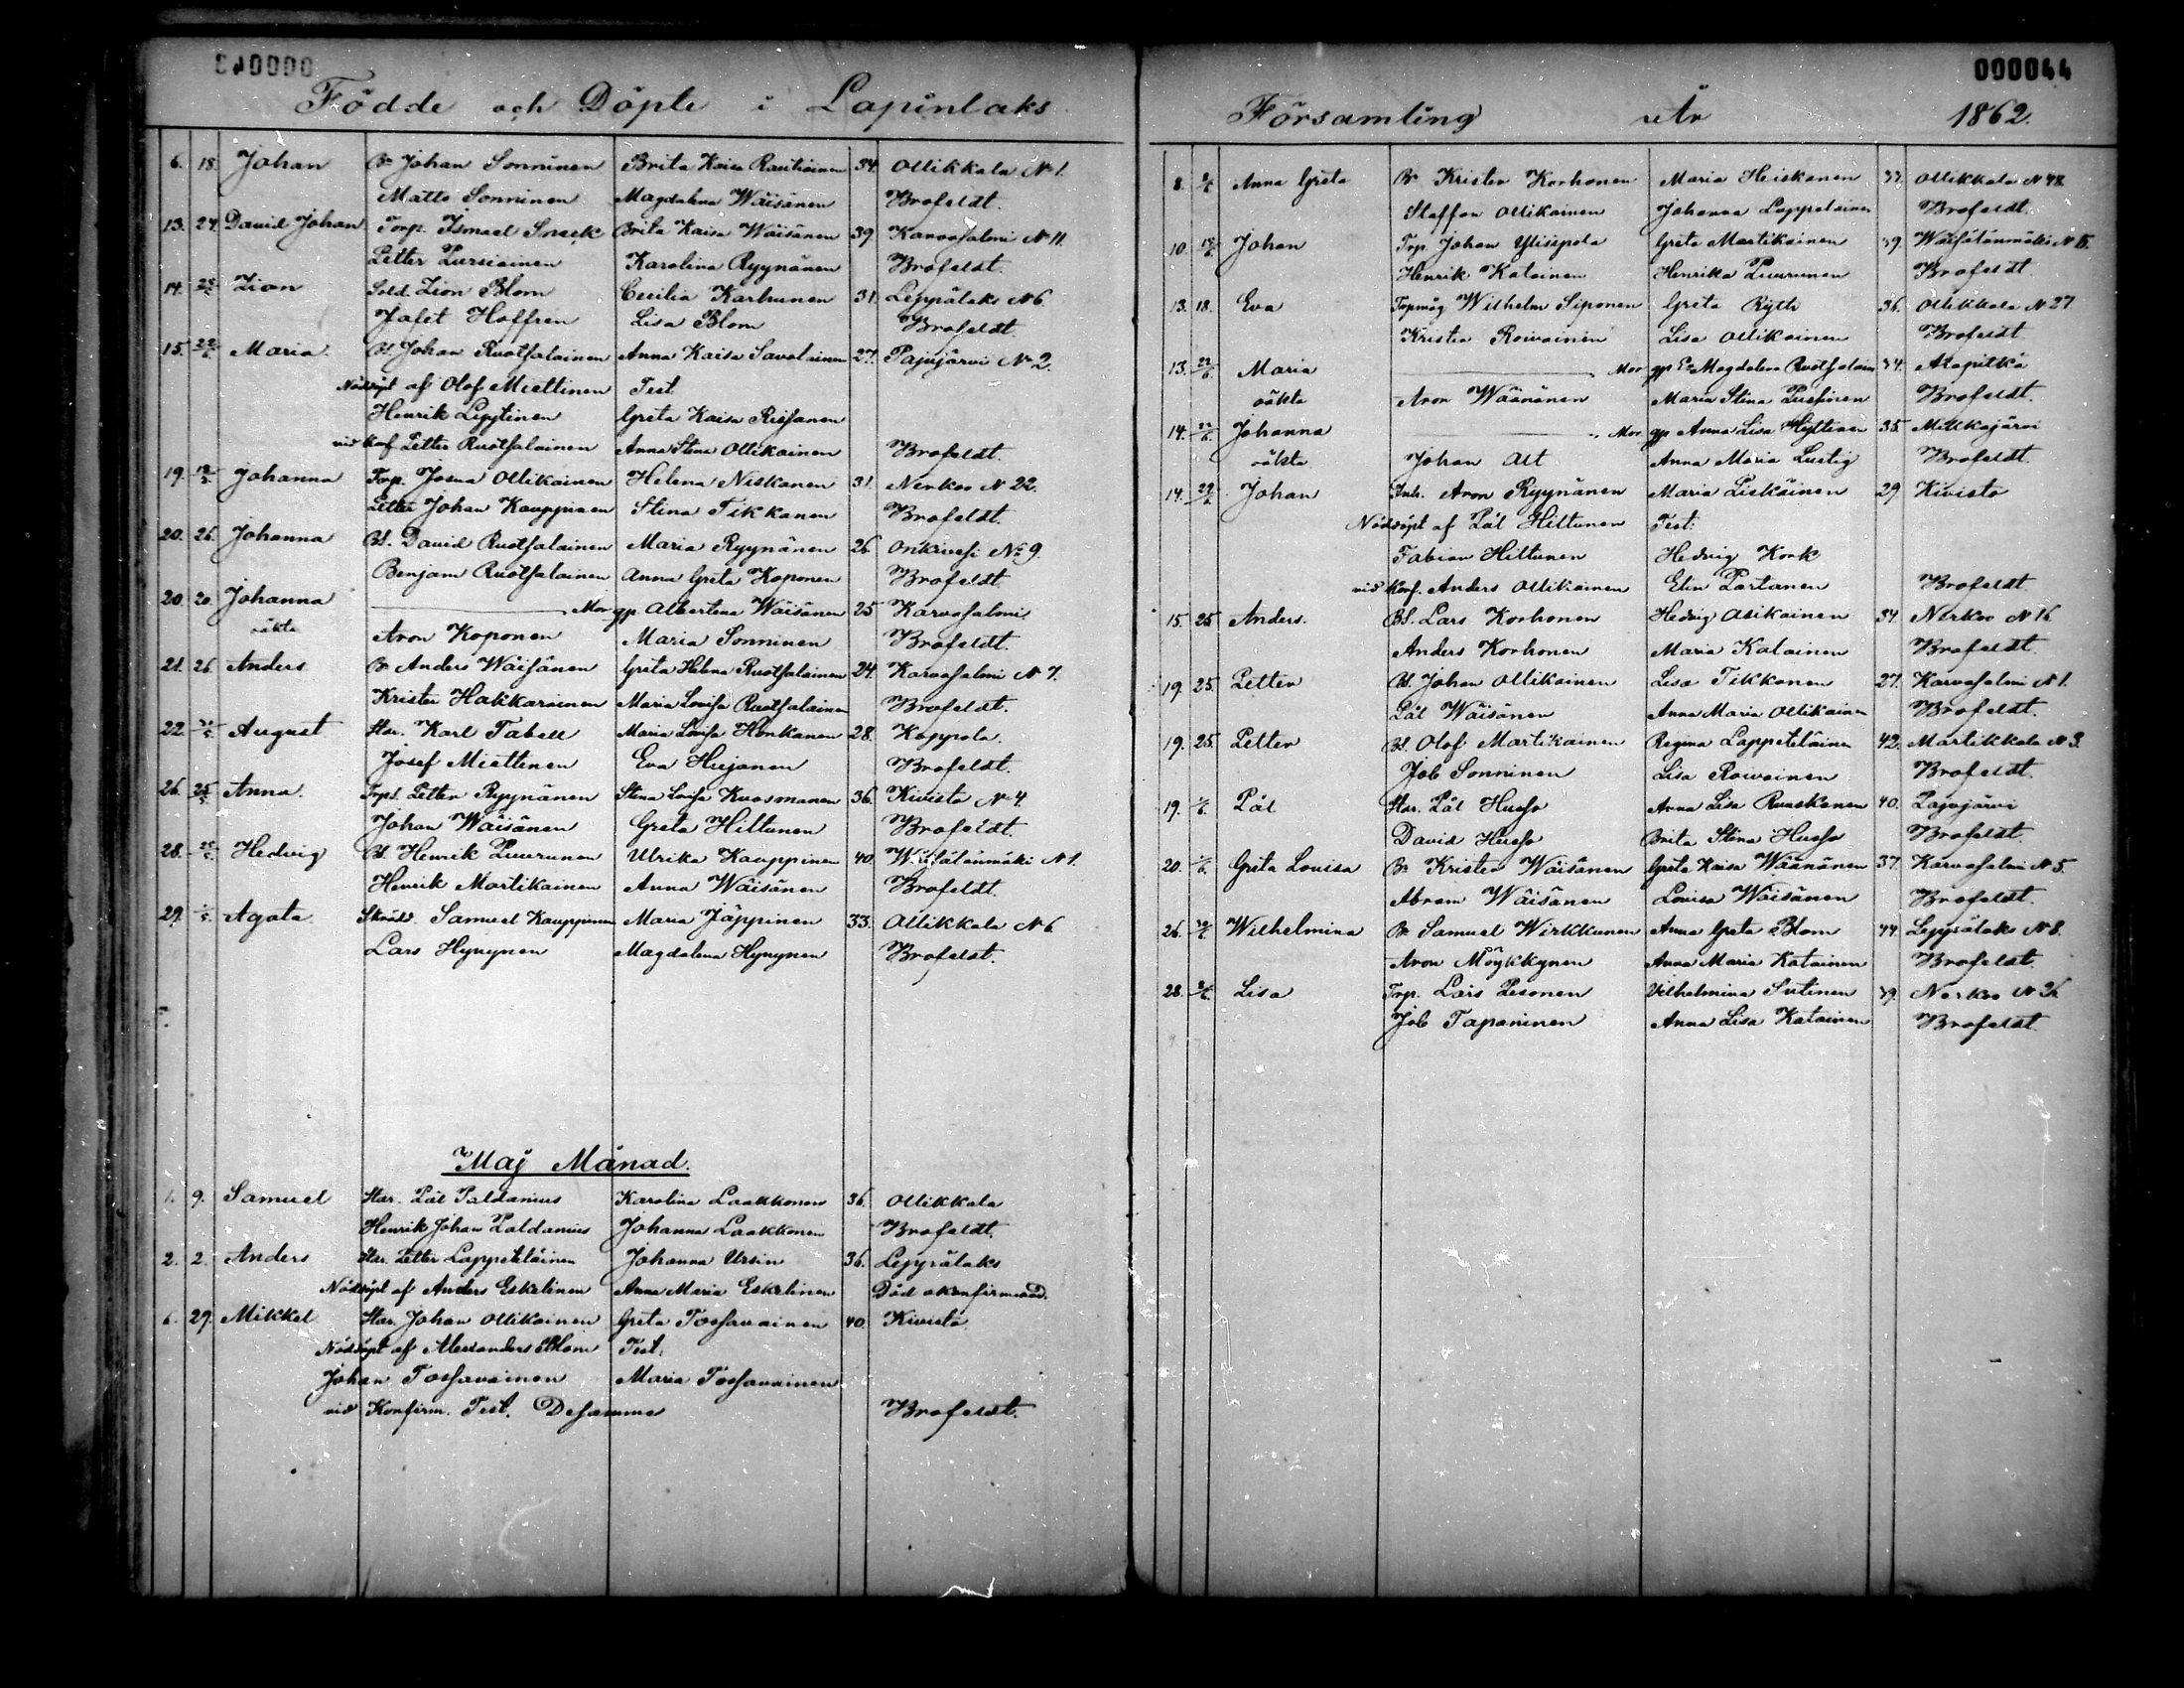 Födde och Döpte i Lapinlaks
6. 18. Johan Br Johan Sonninen Brita Kaisa Rautiainen 34. Ollikkala N 1.
Matts Sonninen Magdalena Wäisänen Brofeldt.
13. 24. David Johan Torp. Ismael Snäck Brita Kaisa Wäisänen 39 Karvasalmi N 11.
Petter Pursiainen Karolina Ryynänen Brofeldt.
14. Zion Sold. Zion Blom Cecilia Karhunen 31. Leppälaks N 6.
Jafet Hoffren Lisa Blom Brofeldt.
15. 22/6 Maria. Bd. Johan Ruotsalainen Anna Kaisa Savolainen 27. Pajujärvi No 2.
Nöddöpt af Olof Miettinen Test.
Henrik Lyytinen Greta Kaisa Rissanen
vid Konf. Petter Ruotsalainen Anna Stina Ollikainen Brofeldt.
19. Johanna Torp. Josua Ollikainen Helena Niskanen 31. Nerkoo N 22.
Petter Johan Kauppinen Stina Tikkanen Brofeldt.
20. 26. Johanna Bd. David Ruotsalainen Maria Ryynänen 26. Onkivesi No 9.
Benjam Ruotsalainen Anna Greta Koponen Brofeldt.
20. 20. Johanna Mor gp Albertina Wäisänen 25 Karvasalmi
oäkta Aron Koponen Maria Sonninen Brofeldt.
21. 26. Anders Br Anders Wäisänen Greta Helena Ruotsalainen 24. Karvasalmi N 7.
Krister Hakkarainen Maria Lovisa Ruotsalainen Brofeldt.
22. August Här. Karl Tabell Maria Lovisa Honkanen 28. Koppola.
Josef Miettinen Eva Huejanen Brofeldt.
26. 25/5 Anna. Torpd. Petter Ryynänen Stina Lovisa Kuosmanen 36. Kivistö N 4.
Johan Wäisänen Greta Hiltunen Brofeldt.
28. Hedvig Bd. Henrik Puurunen Ulrika Kauppinen 40. Wäisälänmäki N 1.
Henrik Martikainen Anna Wäisänen Brofeldt.
29. Agata Skrädd. Samuel Kauppinen Maria Jäppinen 33. Ollikkala N 6
Lars Hynynen Magdalena Hynynen Brofeldt.
Maj Månad.
1. 9. Samuel Här. Pål Paldanius Karolina Laakkonen 36. Ollikkala
Henrik Johan Paldanius Johanna Laakkonen Brofeldt.
2. 2. Anders Här. Petter Lappeteläinen Johanna Ursin 36. Leppälaks
Nöddöpt af Anders Eskelinen Anna Maria Eskelinen Död okonfirmerad.
6. 29. Mikkel Här. Johan Ollikainen Greta Tossavainen 40. Kivistö
Nöddöpt af Alexanders Blom Test:
Johan Tossavainen Maria Tossavainen
vid Konfirm. Test. Desamma Brofeldt.
000044
Församling År 1862.
8. Anna Greta Br Krister Korhonen Maria Heiskanen Ollikkala N 48.
Staffan Ollikainen Johanna Lappalainen Brofeldt.
10. Johan Torp. Johan Ylisipola Greta Martikainen 39. Wäisälänmäki N 15.
Henrik Katainen Henrika Puurunen Brofeldt.
13. 18. Eva Torpmåg Wilhelm Siponen Greta Ryth 36. Ollikkala N 27
Krister Rovainen Lisa Ollikainen Brofeldt
13. 22/6. Maria Mor gp Magdalena Ruotsalain 34. Alapitkä
oäkta Aron Wäänänen Maria Stina Pursinen Brofeldt.
14. Johanna Mor gp Anna Lisa Hyttinen 35. Mäkkajärvi
oäkta Johan Alt Anna Maria Lustig Brofeldt.
14. Johan Inh. Aron Ryynänen Maria Liskäinen 29 Kivistö
Nöddöpt af Pål Hiltunen Test:
Fabian Hiltunen Hedvig Kork
vid Konf. Anders Ollikainen Elin Partanen Brofeldt.
15. 25 Anders. Bd. Lars Korhonen Hedvig Asikainen 34. Nerkoo N 16
Anders Korhonen Maria Katainen Brofeldt.
19. 25. Petter Bd. Johan Ollikainen Lisa Tikkanen 27. Karvasalmi N 1.
Pål Wäisänen Anna Maria Ollikain Brofeldt.
19. 25. Petter Bd. Olof Martikainen Regina Lappeteläinen 42. Martikkala N 3.
Job Sonninen Lisa Rovainen Brofeldt.
19. Pål Här. Pål Husso Anna Lisa Ruuskanen 40. Pajujärvi
David Husso Brita Stina Husso Brofeldt.
20. Greta Lovisa Br Krister Wäisänen Greta Kaisa Wäänänen 37. Karvasalmi N 5.
Abram Wäisänen Lovisa Wäisänen Brofeldt.
26. Wilhelmina Br Samuel Wirkkunen Anna Greta Blom 44. Leppälaks N 8.
Aron Möykkynen Anna Maria Katainen Brofeldt.
28. Lisa Torp. Lars Pesonen Vilhelmina Sutinen 39. Nerkoo N 26
Job Tapaninen Anna Lisa Katainen Brofeldt.